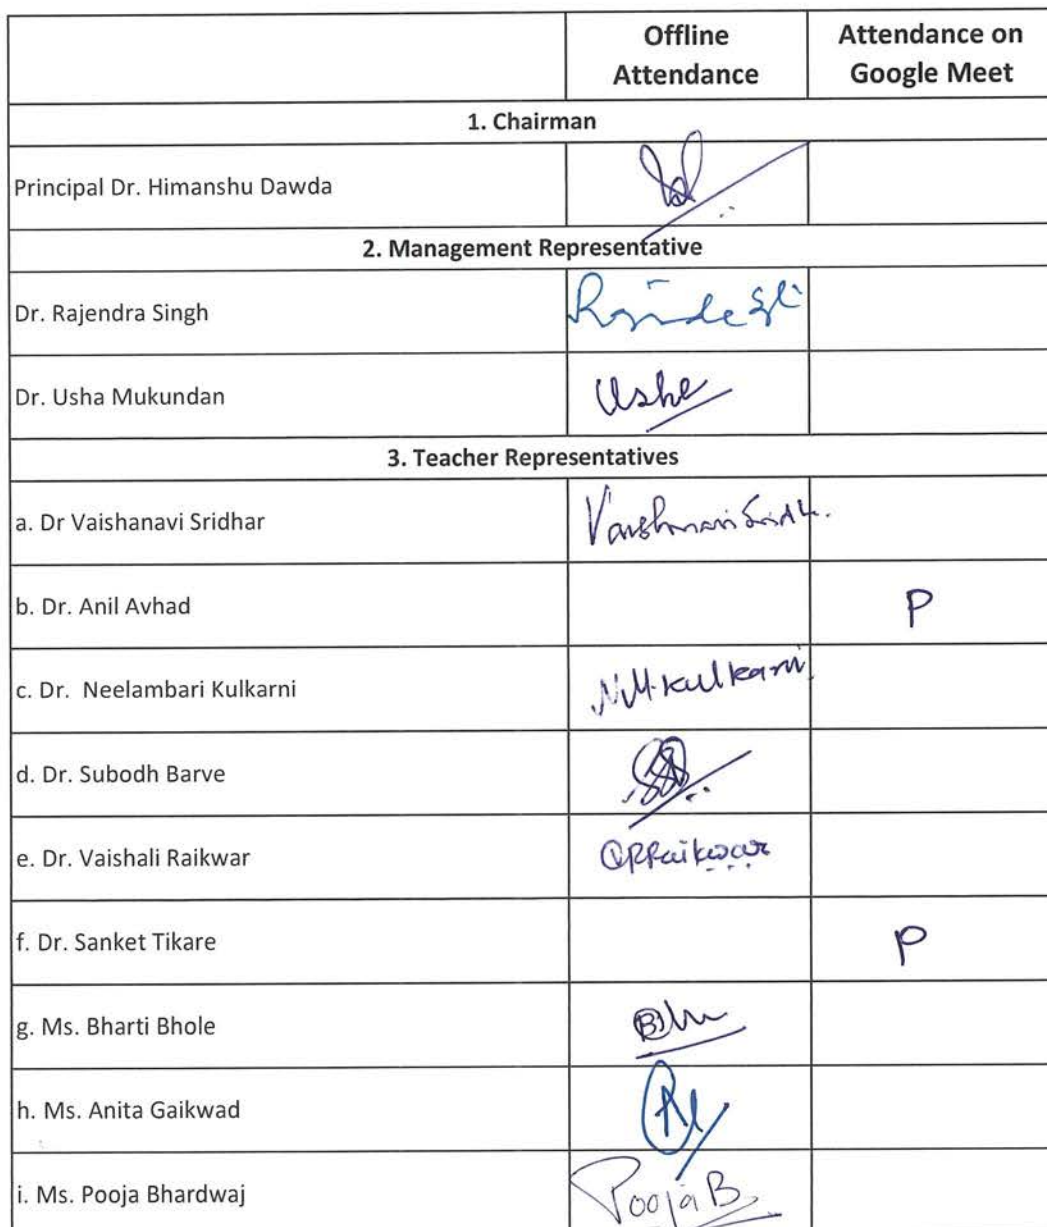 Offline Attendance on
Attendance Google Meet
1. Chairman
Principal Dr. Himanshu Dawda
2. Management Representative
Dr. Rajendra Singh
Dr. Usha Mukundan Usha
3. Teacher Representatives
a. Dr Vaishanavi Sridhar
b. Dr. Anil Avhad P
c. Dr. Neelambari Kulkarni N.M.Kulkarni
d. Dr. Subodh Barve
e. Dr. Vaishali Raikwar
f. Dr. Sanket Tikare P
g. Ms. Bharti Bhole
h. Ms. Anita Gaikwad
i. Ms. Pooja Bhardwaj Pooja B.